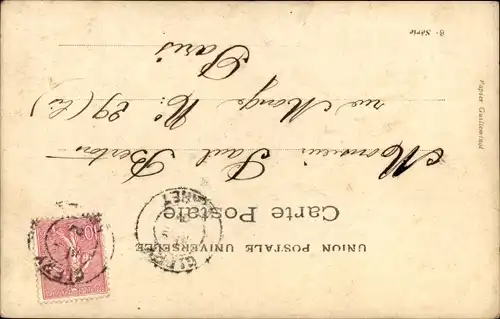 UNION POSTALE UNIVERSELLE
Carte Postale
Monsieur Paul Berton
rue Monge No: 29 (bis)
Paris
6e Série
Papier Guilleminot
10
CLERY
LOIRET